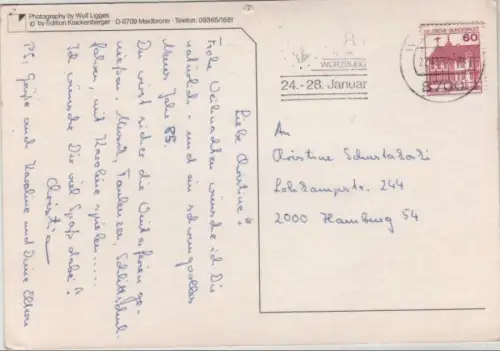 Photography by Wulf Ligges
© by Edition Krackenberger · D-8709 Meidbronn · Telefon: 09365/1681
Liebe Christine,
Frohe Weihnachten wünsche ich Dir
natürlich - und ein schwungvolles
Neues Jahr 85.
Du wirst sicher die Winterferien ge-
nießen, Musik, Faulenzen, Schlittschuh-
fahren, mit Karoline spielen.....
Ich wünsche Dir viel Spaß dabei!
Christia
PS. Grüße auch Karoline und Deine Eltern
WÜRZBURG
24.-28. Januar
8700
DEUTSCHE BUNDESPOST
60
An
Christine
2000 Hamburg 54
244